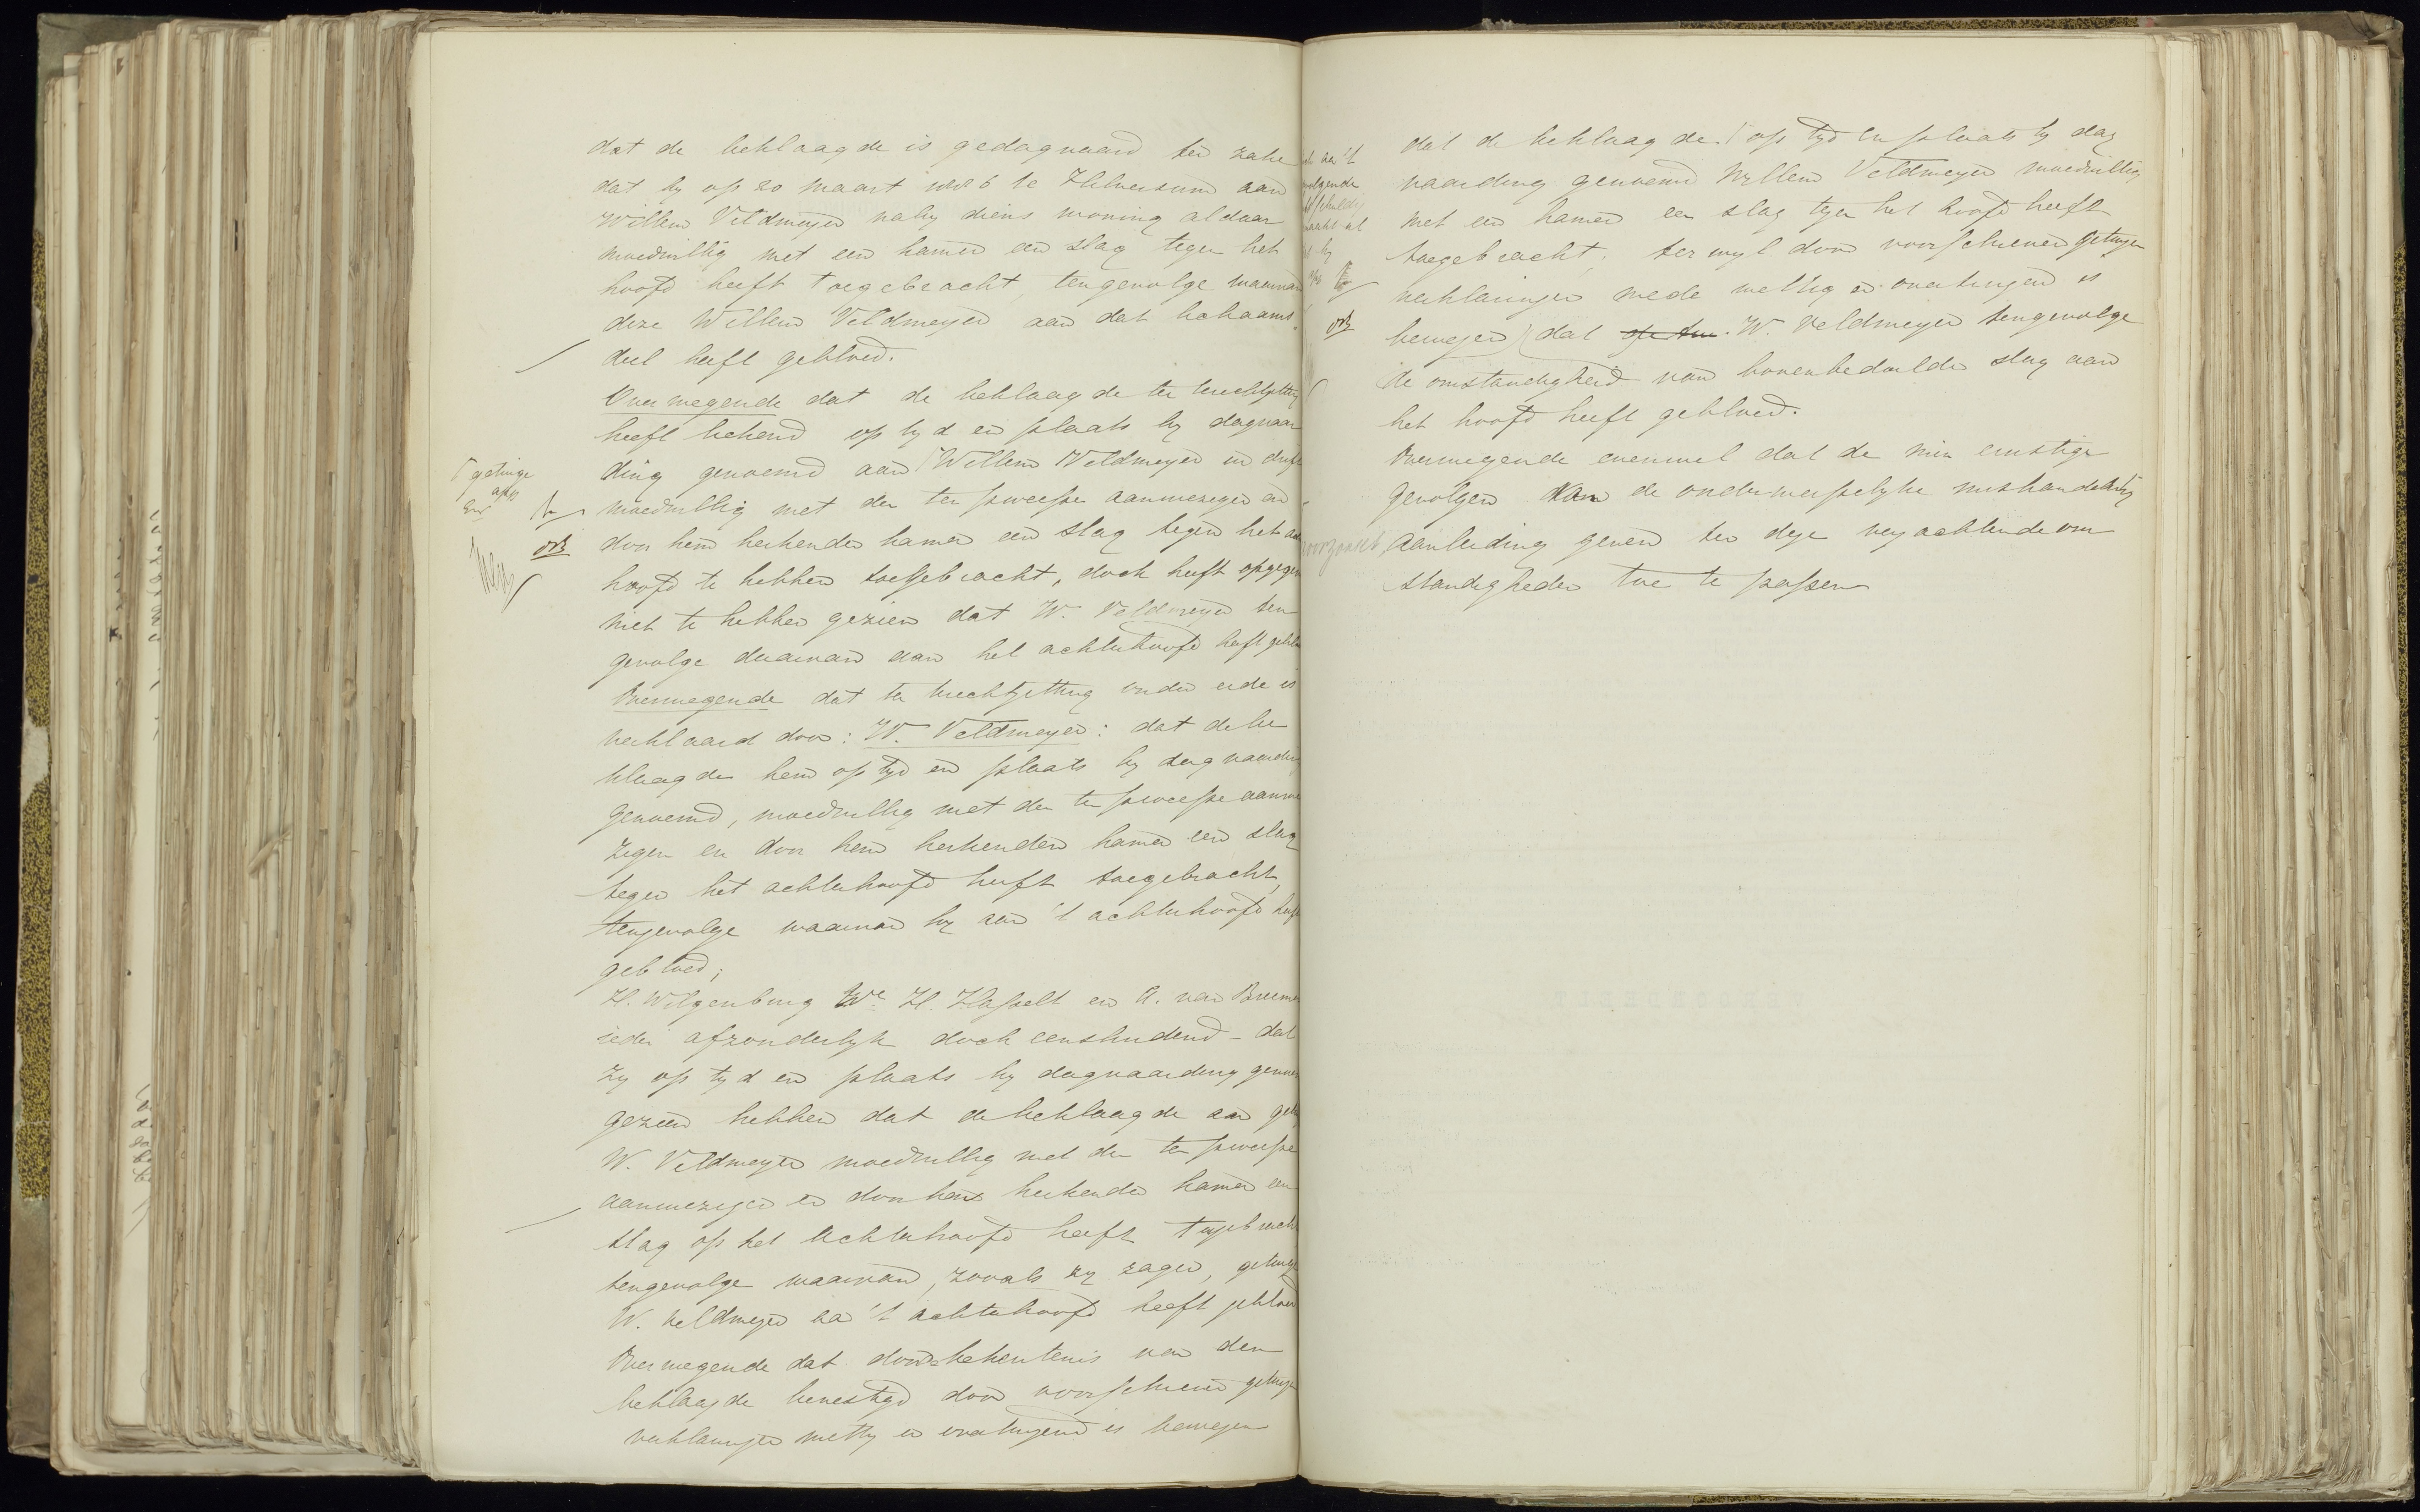 dat de beklaagde is gedagvaard ter zake
dat hy op 20 maart 1886 te Hilversum aan
Willem Veldmeyer naby diens woning aldaar
moedwillig met een hamer een slag tegen het
hoofd heeft toegebracht, tengevolge waarvan
deze Willem Veldmeyer aan dat lichaams
deel heeft gebloed.
Overwegende dat de beklaagde ter terechtzitting
heeft bekend op tyd en plaats by dagvaar
ding genoemd aan Willem Veldmeyer in drift
moedwillig met den ter sweepse aanwezigen en
door hem herkenden hamer een slag tegen het
hoofd te hebben toegebracht, doch heeft opgegeven
niet te hebben gezien dat W. Veldmeyer ten
gevolge daarvan aan het achterhoofd heeft
Overwegende dat ter terechtzitting onder eede is
verklaard door: W. Veldmeyer: dat de be
klaagde hem op tyd en plaats by dagvaarding
genoemd, moedwillig met den ter aanwe
zigen en door hem herkenden hamer een slag
tegen het achterhoofd heeft toegebracht,
tengevolge waarvan hy aan 't achterhoofd heeft
gebloed;
H. Wilgenburg We H. Hasselt en A. van
ieder afzonderlyk doch eensluidend - dat
zy op tyd en plaats by dagvaarding
gezien hebben dat de beklaagde aan
W. Veldmeyer moedwillig met den ter
aanwezigen en door hen herkenden hamer een
slag op het achterhoofd heeft toegebracht
tengevolge waarvan, zooals zy zagen, getuige
W. Veldmeyer aan 't achterhoofd heeft gebloed
Overwegende dat door de bekentenis van den
beklaagde bevestigd door voorschreven getuigen
verklaringen wettig en overtuigend is bewezen
getuige
dat de beklaagde op tyd en plaats by dag
vaarding genoemd Willem Veldmeyer moedwillig
met een hamer een slag tegen het hoofd heeft
toegebracht; terwyl door voorschreven getuigen
verklaringen mede wettig en overtuigend is
bewezen dat W. Veldmeyer tengevolge
van bovenbedoelde slag aan
de omstandigheid
het hoofd heeft gebloed.
Overwegende evenwel dat de min ernstige
gevolgen van de onderwerpelyke mishandeling
aanleiding geven ter dege verzachtende om
standigheden toe te passen
veroorzaakt